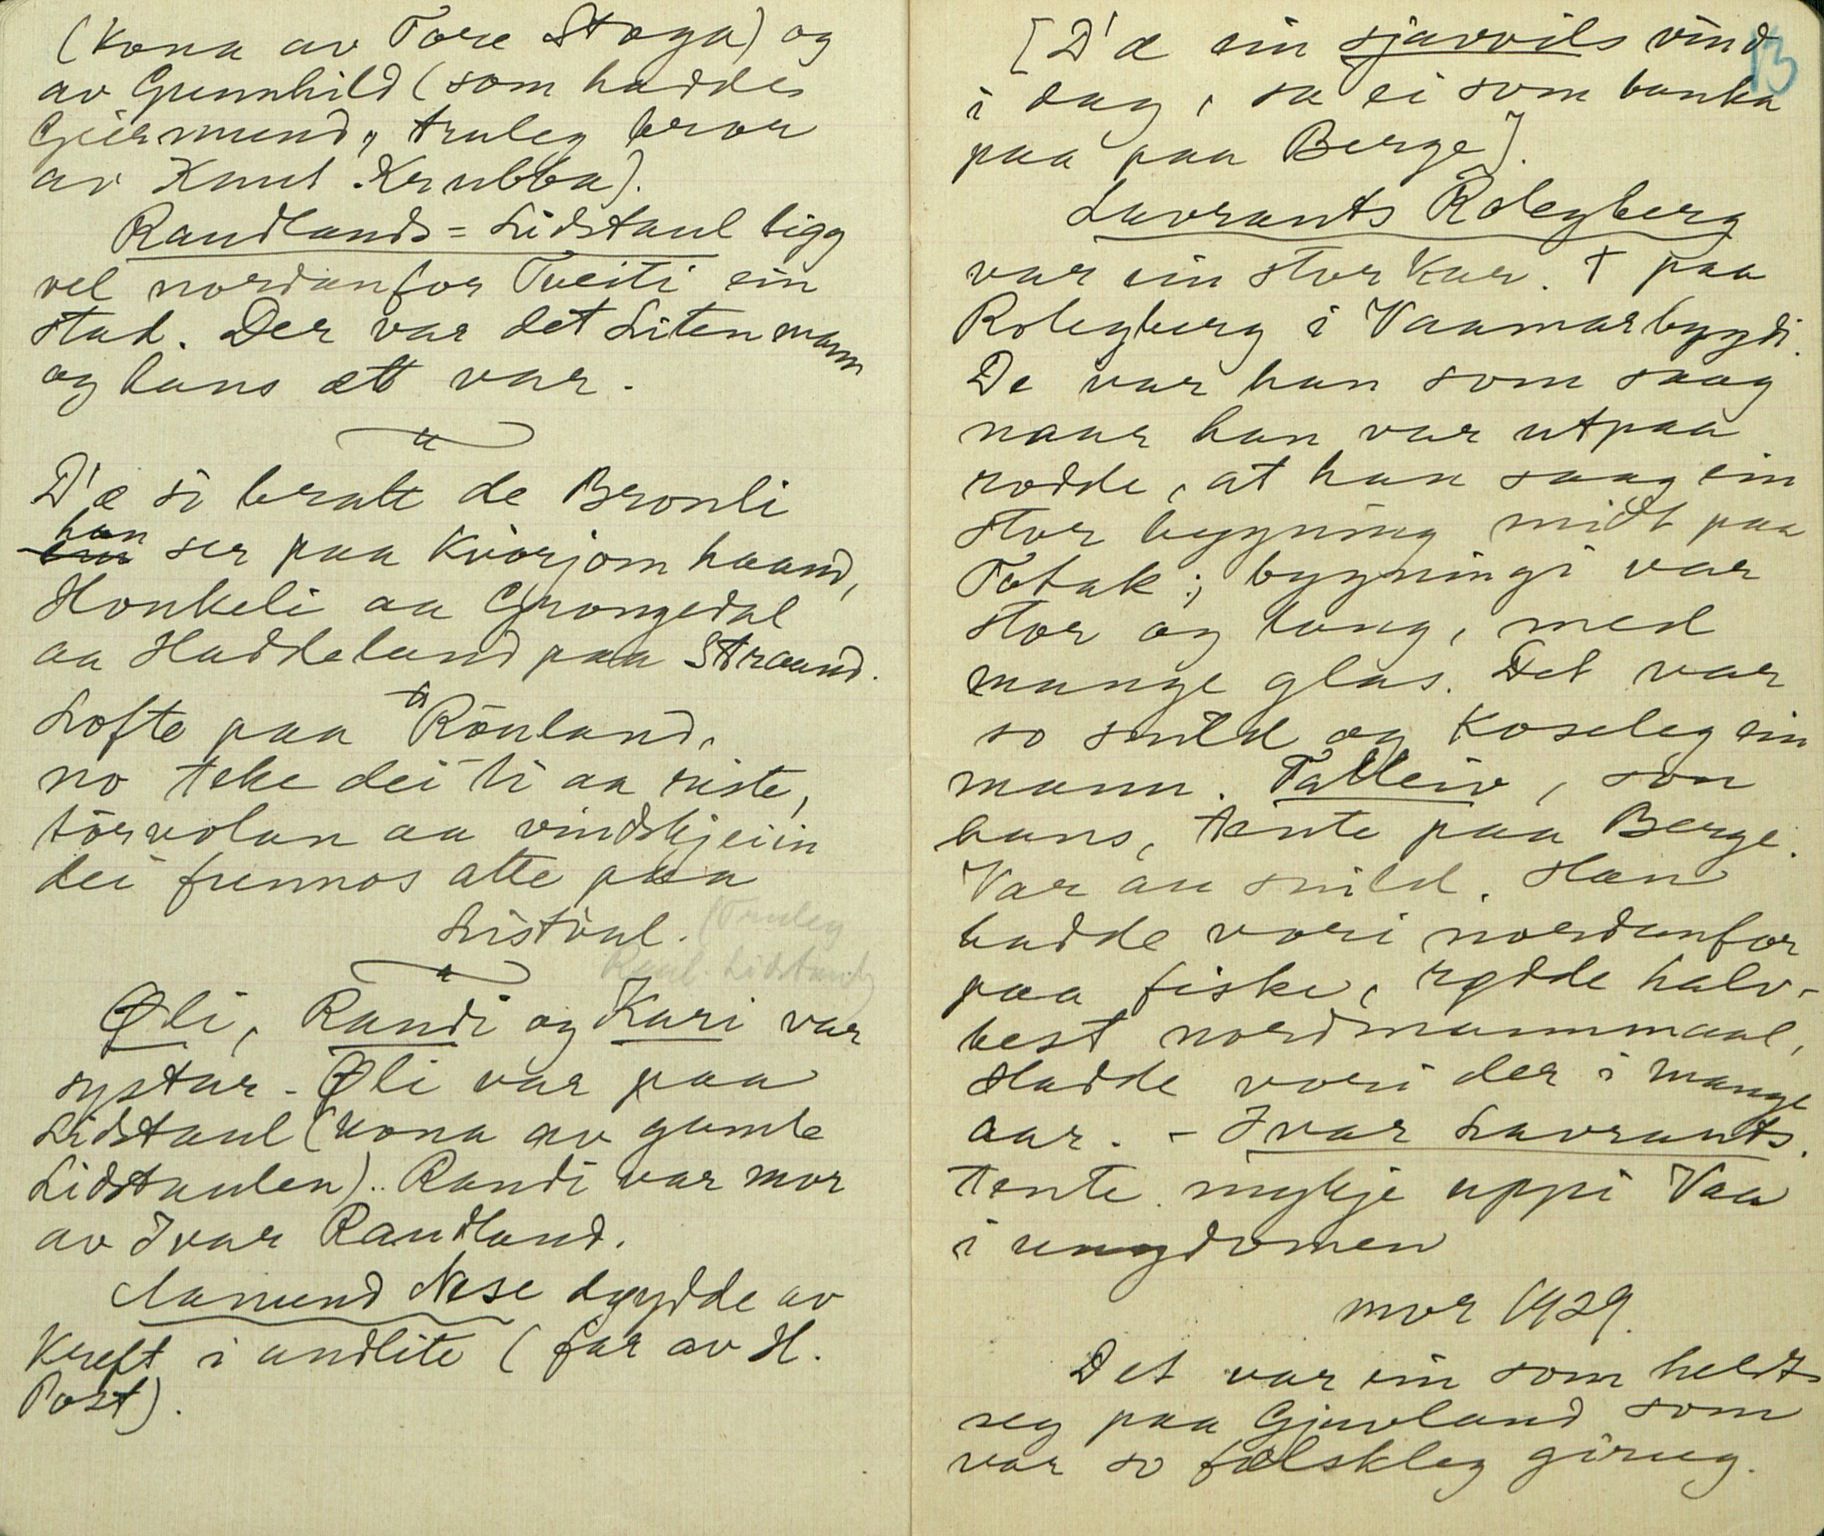 (kona av Tore Stoga) og
av Gunnhild (som hadde
Geirmund, truleg bror
av Knut Krubba).
Randlands-Lidstaul ligg
vel nordanfor Tveiti ein
stad. Der var det Litenmann
og hans ætt var.
D'æ so bratt de Bronli
han ser paa Kvorjom haand,
Honkeli aa Grongedal
aa Haddeland paa Straand.
Lofte paa Rönland,
no teke dei ti aa riste,
törvolan aa vindskjeiin
dei funnos atte paa
Listaul. (Truleg
Raul. Lidstaul)
Øli, Randi og Kari var
systar - Øli var paa
Lidstaul (kona av gamle
Lidstaulen). Randi var mor
av Ivar Randland.
Aamund Nese døydde av
kreft i andlite (far av H.
Post).
13
[D'æ ein sjavvils vind
i dag, sa ei som banka
paa paa Berge].
Lavrants Rolegberg
var ein stor kar. † paa
Rolegberg i Vaamarbygdi.
De var han som saag
naar han var utpaa
rodde, at han saag ein
stor bygning midt paa
Totak; bygningi var
stor og lang, med
mange glas. Det var
so snild og koseleg ein
mann. Talleiv, son
hans, tente paa Berge.
Var au snild. Han
hadde vori nordanfor
paa fiske, rødde halv-
best nordmannmaal,
Hadde vori der i mange
aar. - Ivar Lavrants.
tente mykje uppi Vaa
i ungdomen
mor 1929.
Det var ein som heldt
seg paa Gjuvland som
var so fælskleg girug.